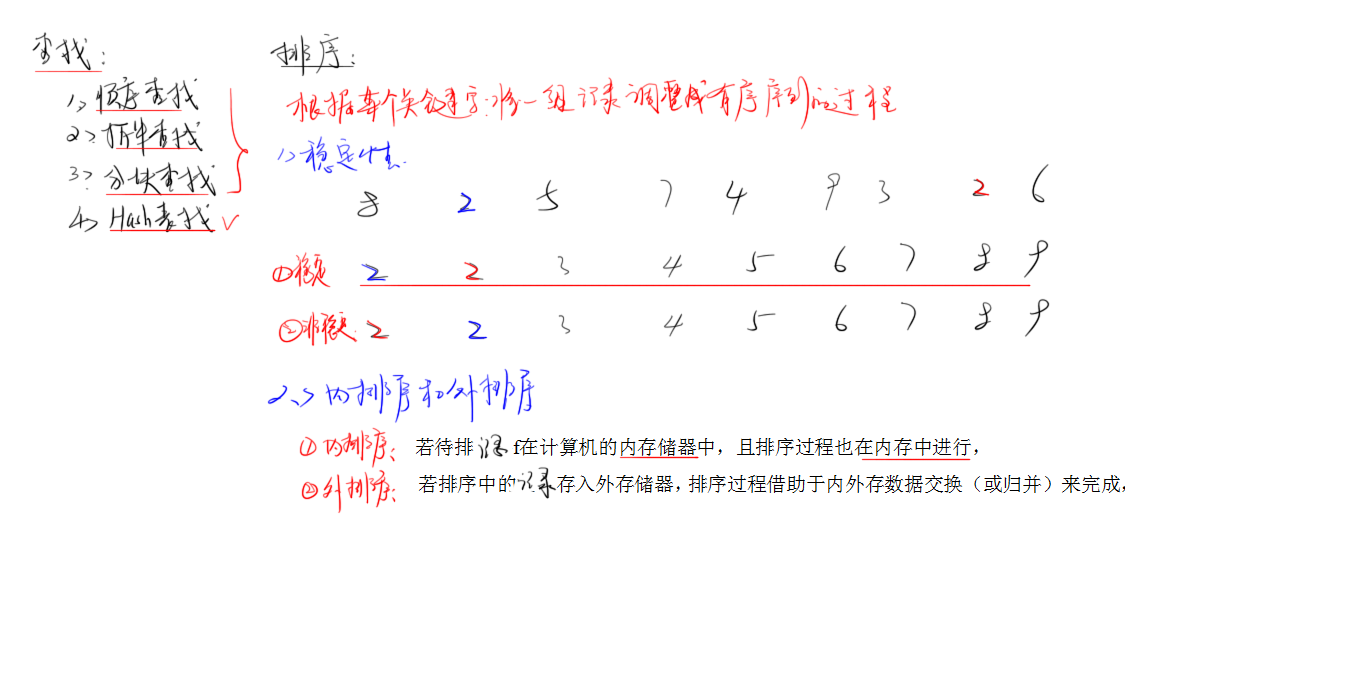 查找：
1> 顺序查找
2> 折半查找
3> 分块查找
4> Hash表查找 √
排序：
根据某个关键字：将一组记录调整成有序序列的过程
1> 稳定性
8 2 5 7 4 9 3 2 6
①稳定 2 2 3 4 5 6 7 8 9
②非稳定 2 2 3 4 5 6 7 8 9
2、> 内排序和外排序
①内排序： 若待排记录f在计算机的内存储器中，且排序过程也在内存中进行，
②外排序： 若排序中的记录存入外存储器，排序过程借助于内外存数据交换（或归并）来完成，